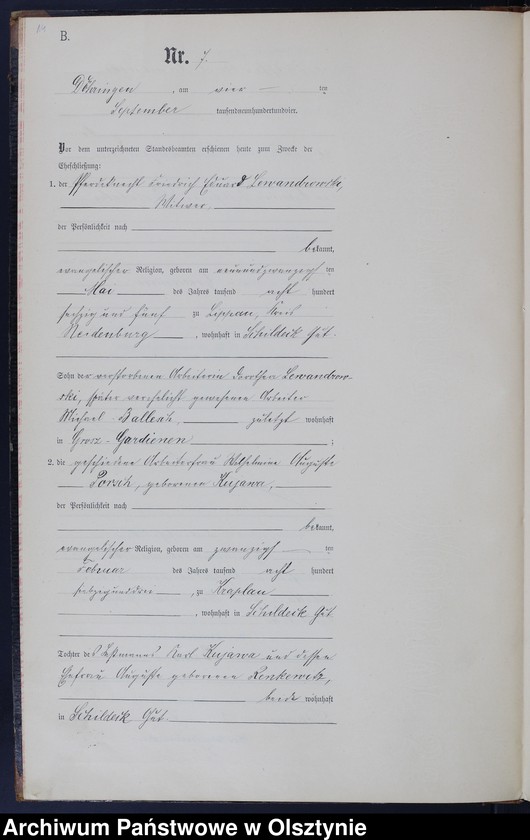 B.
Nr. 7.
Döhringen, am vier ten
September tausendneunhundertundvier.
Vor dem unterzeichneten Standesbeamten erschienen heute zum Zwecke der
Eheschließung:
1. der Pferdeknecht Friedrich Eduard Lewandrowski,
Witwer
der Persönlichkeit nach
bekannt,
evangelischer Religion, geboren am neunundzwanzigs ten
Mai des Jahres tausend acht hundert
sechzig und fünf zu Lippau, Kreis
Neidenburg, wohnhaft in Schildeck Gut.
Sohn der verstorbenen Arbeiterin Dorothea Lewandrow-
ski, später verehelicht gewesenen Arbeiter
Michael zuletzt wohnhaft
in Gross-Gardienen;
2. die geschiedene Arbeiterfrau Wilhelmine Auguste
Porsch, geborenen Kujawa,
der Persönlichkeit nach
bekannt,
evangelischer Religion, geboren am zwanzigs ten
Februar des Jahres tausend acht hundert
siebzigunddrei, zu Kraplau
, wohnhaft in Schildeck Gut
Tochter des Karl Kujawa und dessen
Ehefrau Auguste geborenen Renkewitz,
beide wohnhaft
in Schildeck Gut.
Archiwum Państwowe w Olsztynie